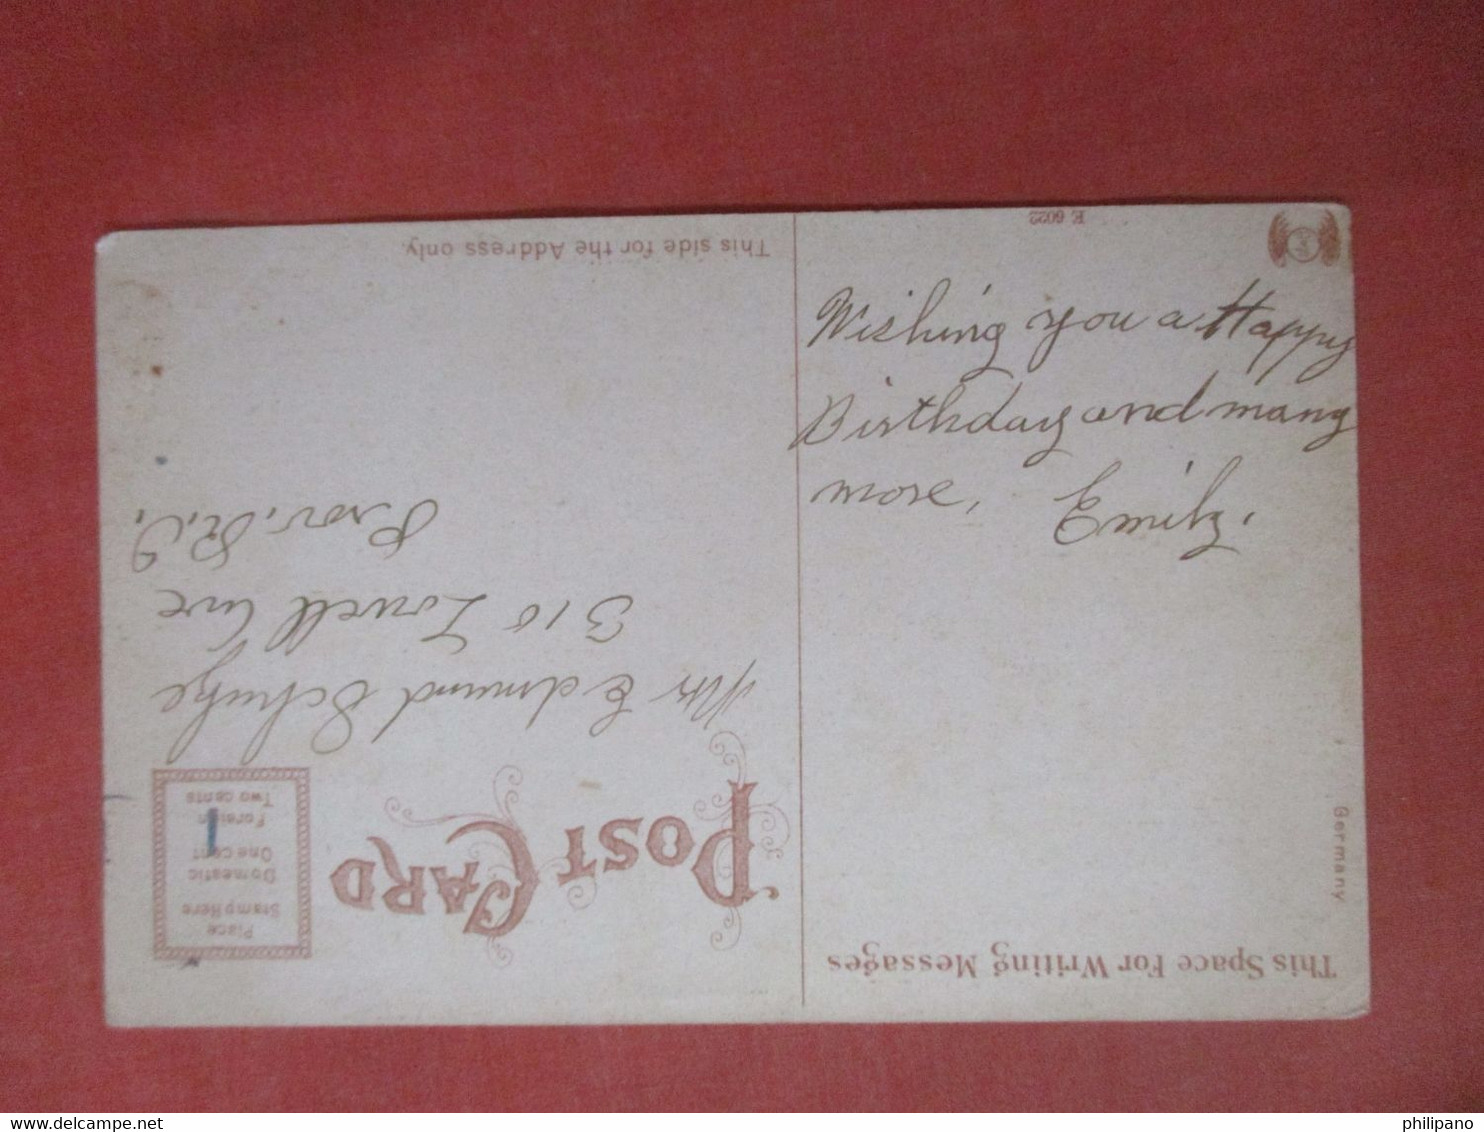 This Space For Writing Messages
Germany
Wishing you a Happy
Birthday and many
more, Emily.
E 6022
POST CARD
Place
Stamp Here
Domestic
One cent
Foreign
Two cents
Mr Edmund Schulze
310 Lowell Ave
Prov. R.I.
This side for the Address only.
philipano